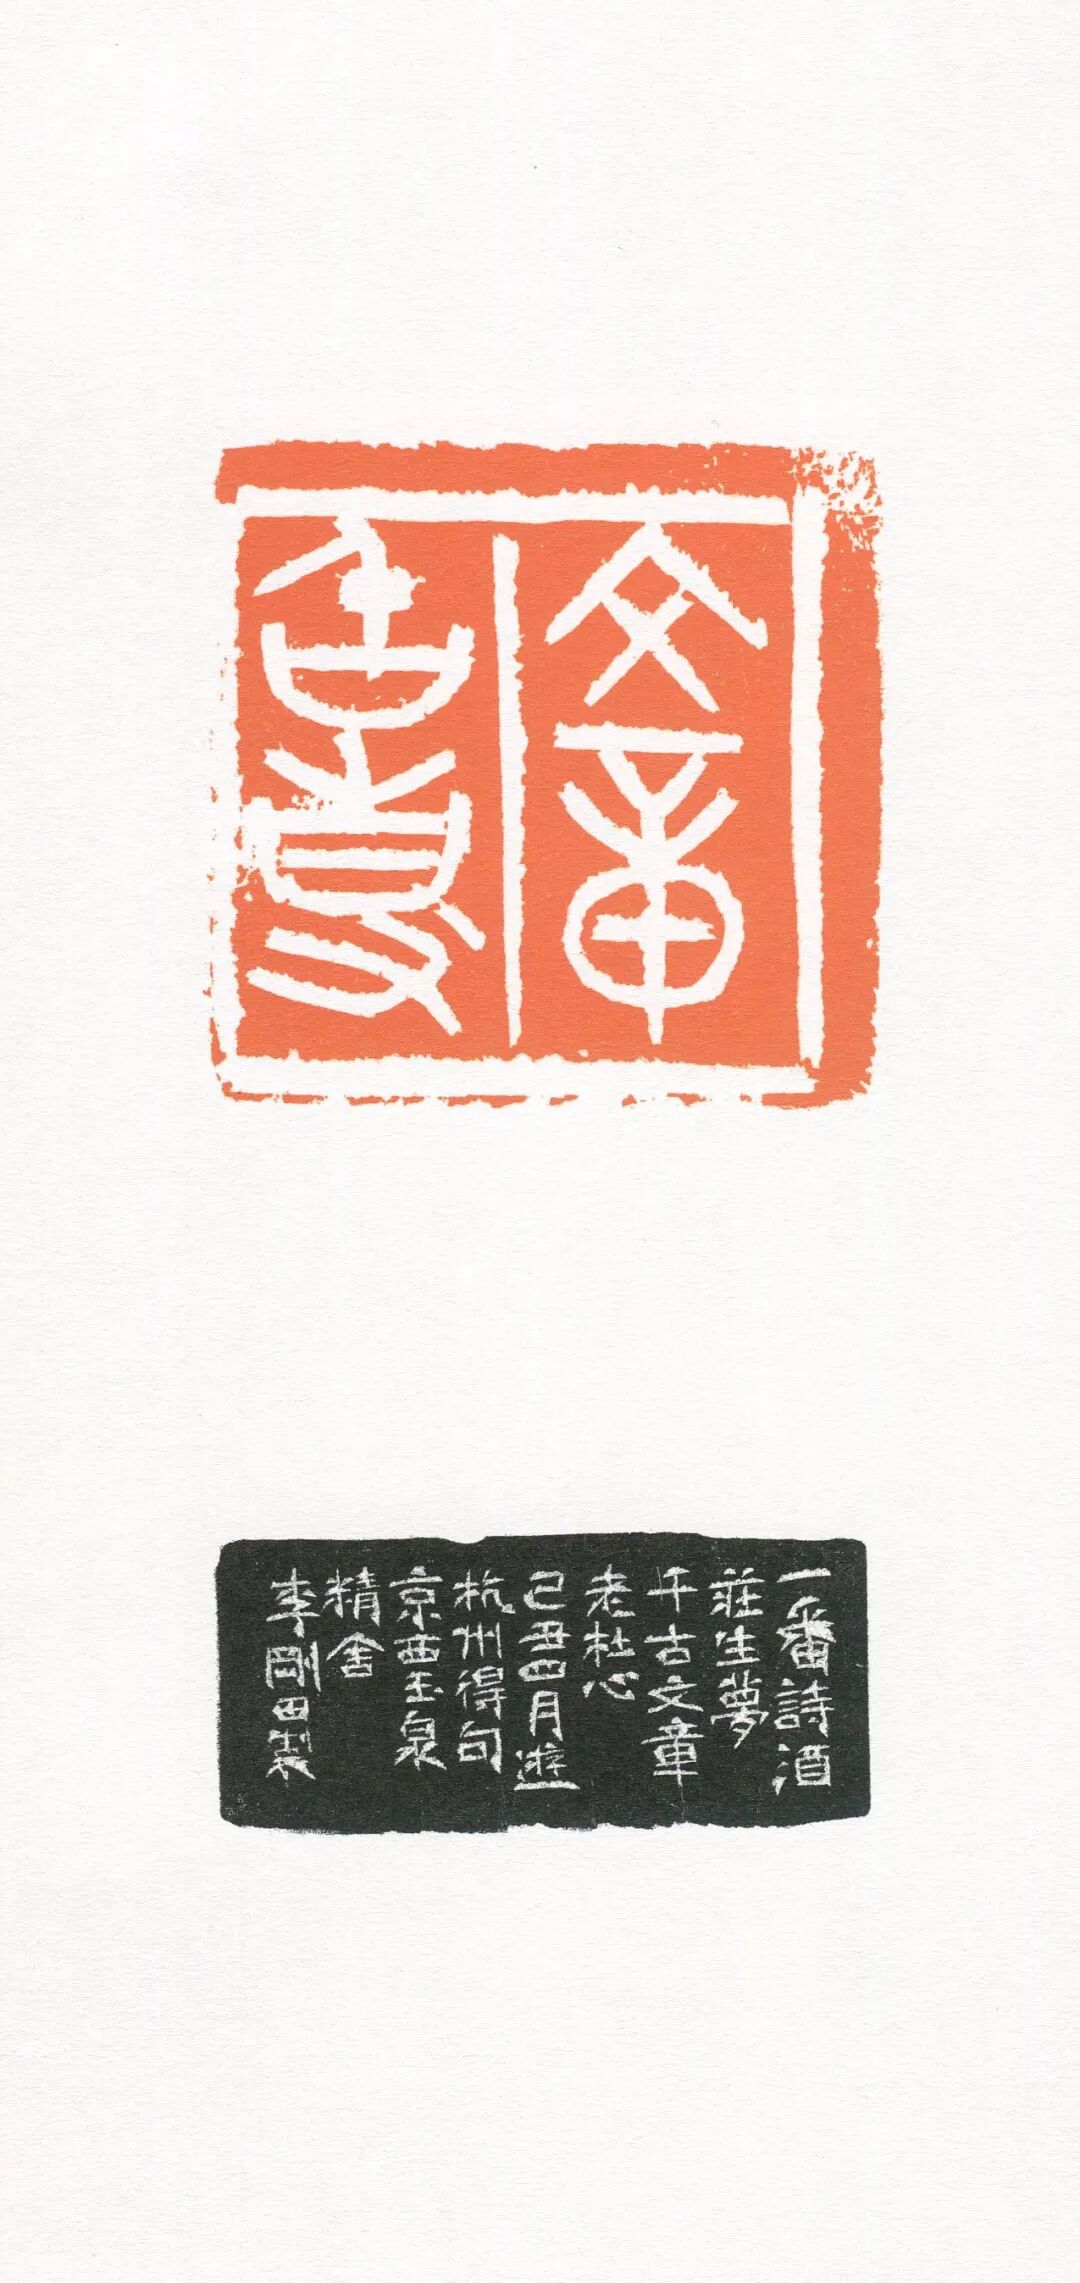 文章
千古事
一番詩酒
莊生夢
千古文章
老杜心
己丑四月遊
杭州得句
京西玉泉
精舍
李剛田製